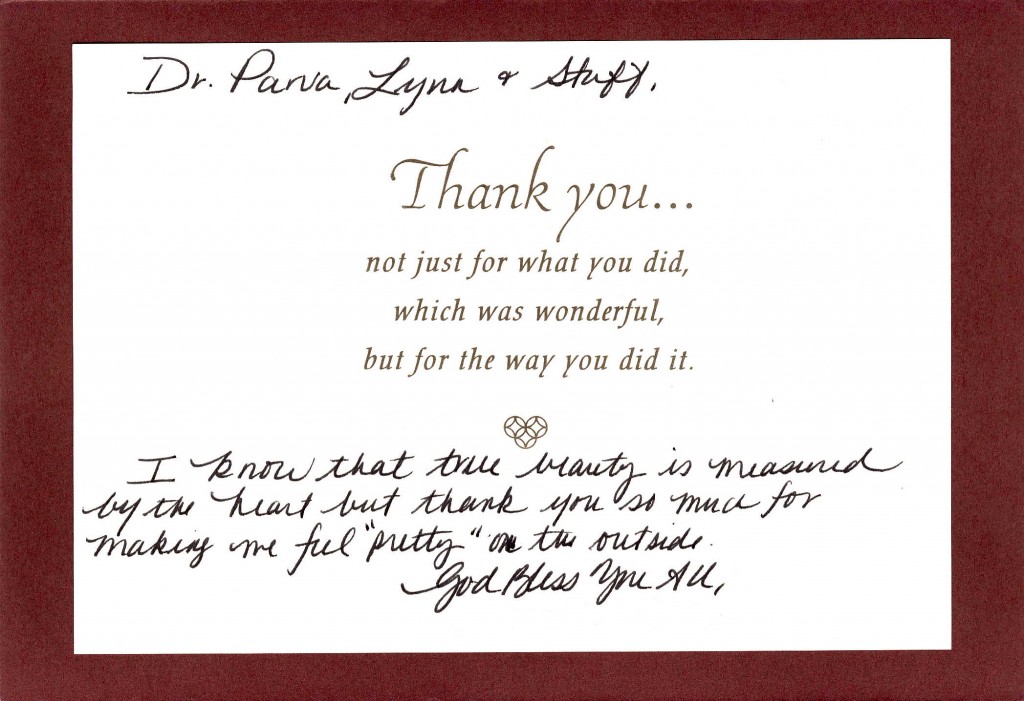 Dr. Parva, Lynn & Staff,
Thank you...
not just for what you did,
which was wonderful,
but for the way you did it.
I know that true beauty is measured
by the heart but thank you so much for
making me feel "pretty" on the outside.
God Bless You All,